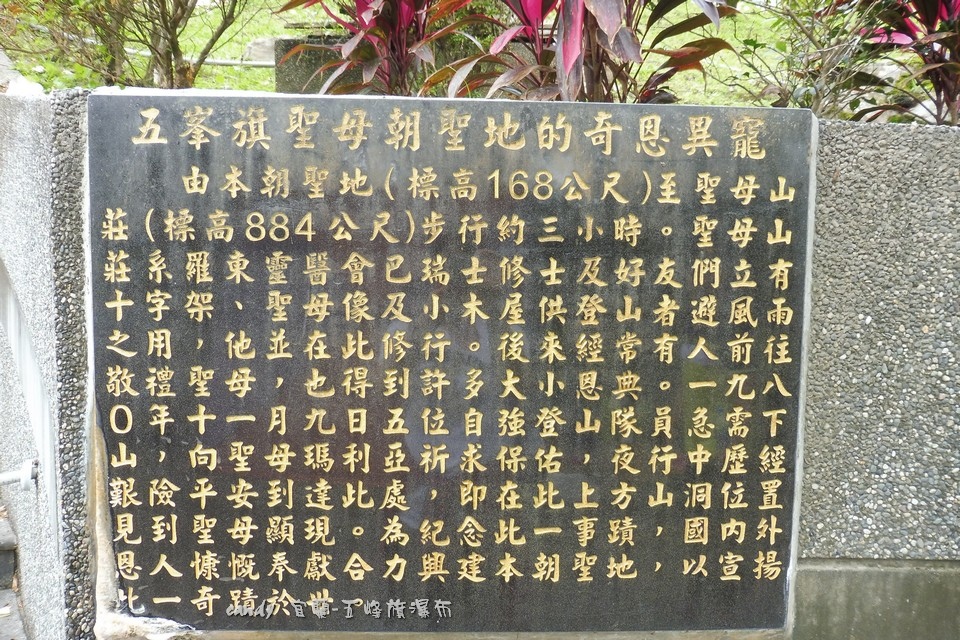 五峯旗聖母朝聖地的奇恩異寵
由本朝聖地(標高168公尺)至聖母山
莊(標高884公尺)步行約三小時。聖母山
莊系羅東靈醫會巴瑞士修士及好友們立有
十字架、聖母像及小木屋供登山者避風雨
之用,他並在此修行。後來經常有人前往
敬禮聖母,也得到許多大小恩典。一九八
0年十一月九日五位自強登山隊員急需下
山,向聖母瑪利亞祈求保佑,夜行中歷經
艱險平安到達此處,即在此上方山洞位置
見到聖母顯現。為紀念此一事蹟,國內外
恩人慷慨奉獻合力興建本朝聖地,以宣揚
此一奇蹟於世。
candy 宜蘭-五峰旗瀑布